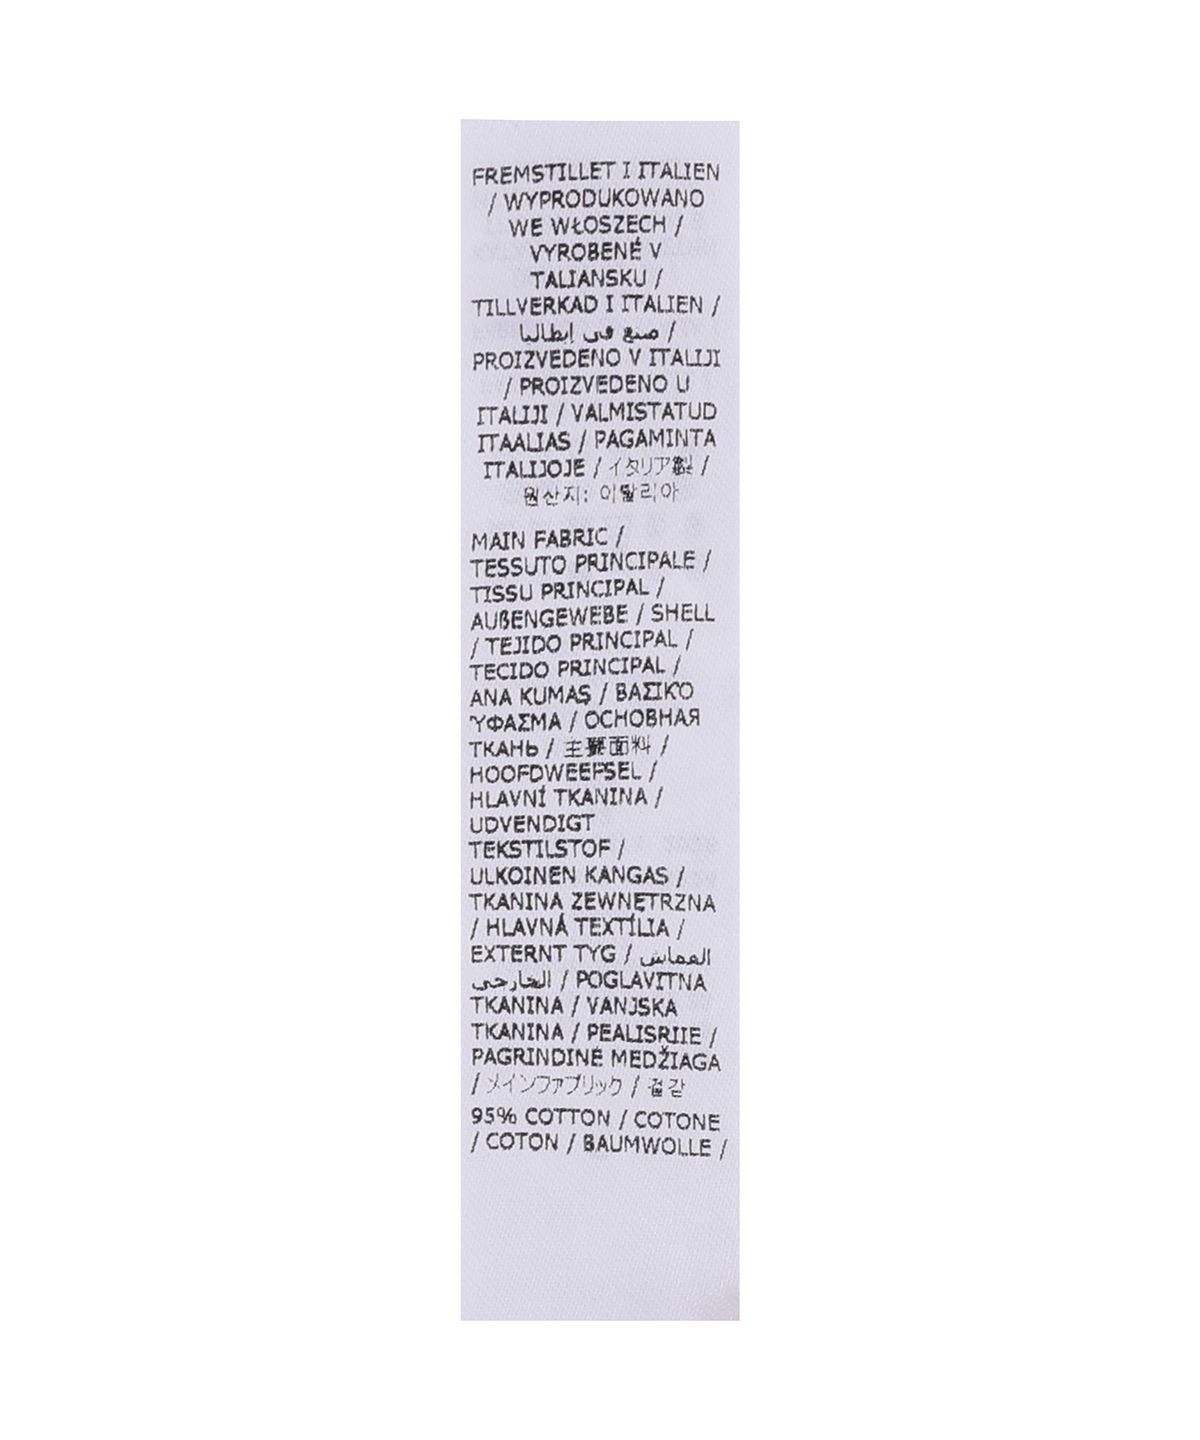 FREMSTILLET I ITALIEN
/ WYPRODUKOWANO
WE WŁOSZECH /
VYROBENÉ V
TALIANSKU /
TILLVERKAD I ITALIEN /
صنع في إيطاليا /
PROIZVEDENO V ITALIJI
/ PROIZVEDENO U
ITALIJI / VALMISTATUD
ITAALIAS / PAGAMINTA
ITALIJOJE / イタリア製 /
원산지: 이탈리아
MAIN FABRIC /
TESSUTO PRINCIPALE /
TISSU PRINCIPAL /
AUßENGEWEBE / SHELL
/ TEJIDO PRINCIPAL /
TECIDO PRINCIPAL /
ANA KUMAŞ / ΒΑΣΙΚΌ
ΎΦΑΣΜΑ / ОСНОВНАЯ
ТКАНЬ / 主要面料 /
HOOFDWEEFSEL /
HLAVNÍ TKANINA /
UDVENDIGT
TEKSTILSTOF /
ULKOINEN KANGAS /
TKANINA ZEWNĘTRZNA
/ HLAVNÁ TEXTÍLIA /
EXTERNT TYG / القماش
الخارجي / POGLAVITNA
TKANINA / VANJSKA
TKANINA / PEALISRIIE /
PAGRINDINĖ MEDŽIAGA
/ メインファブリック / 겉감
95% COTTON / COTONE
/ COTON / BAUMWOLLE /